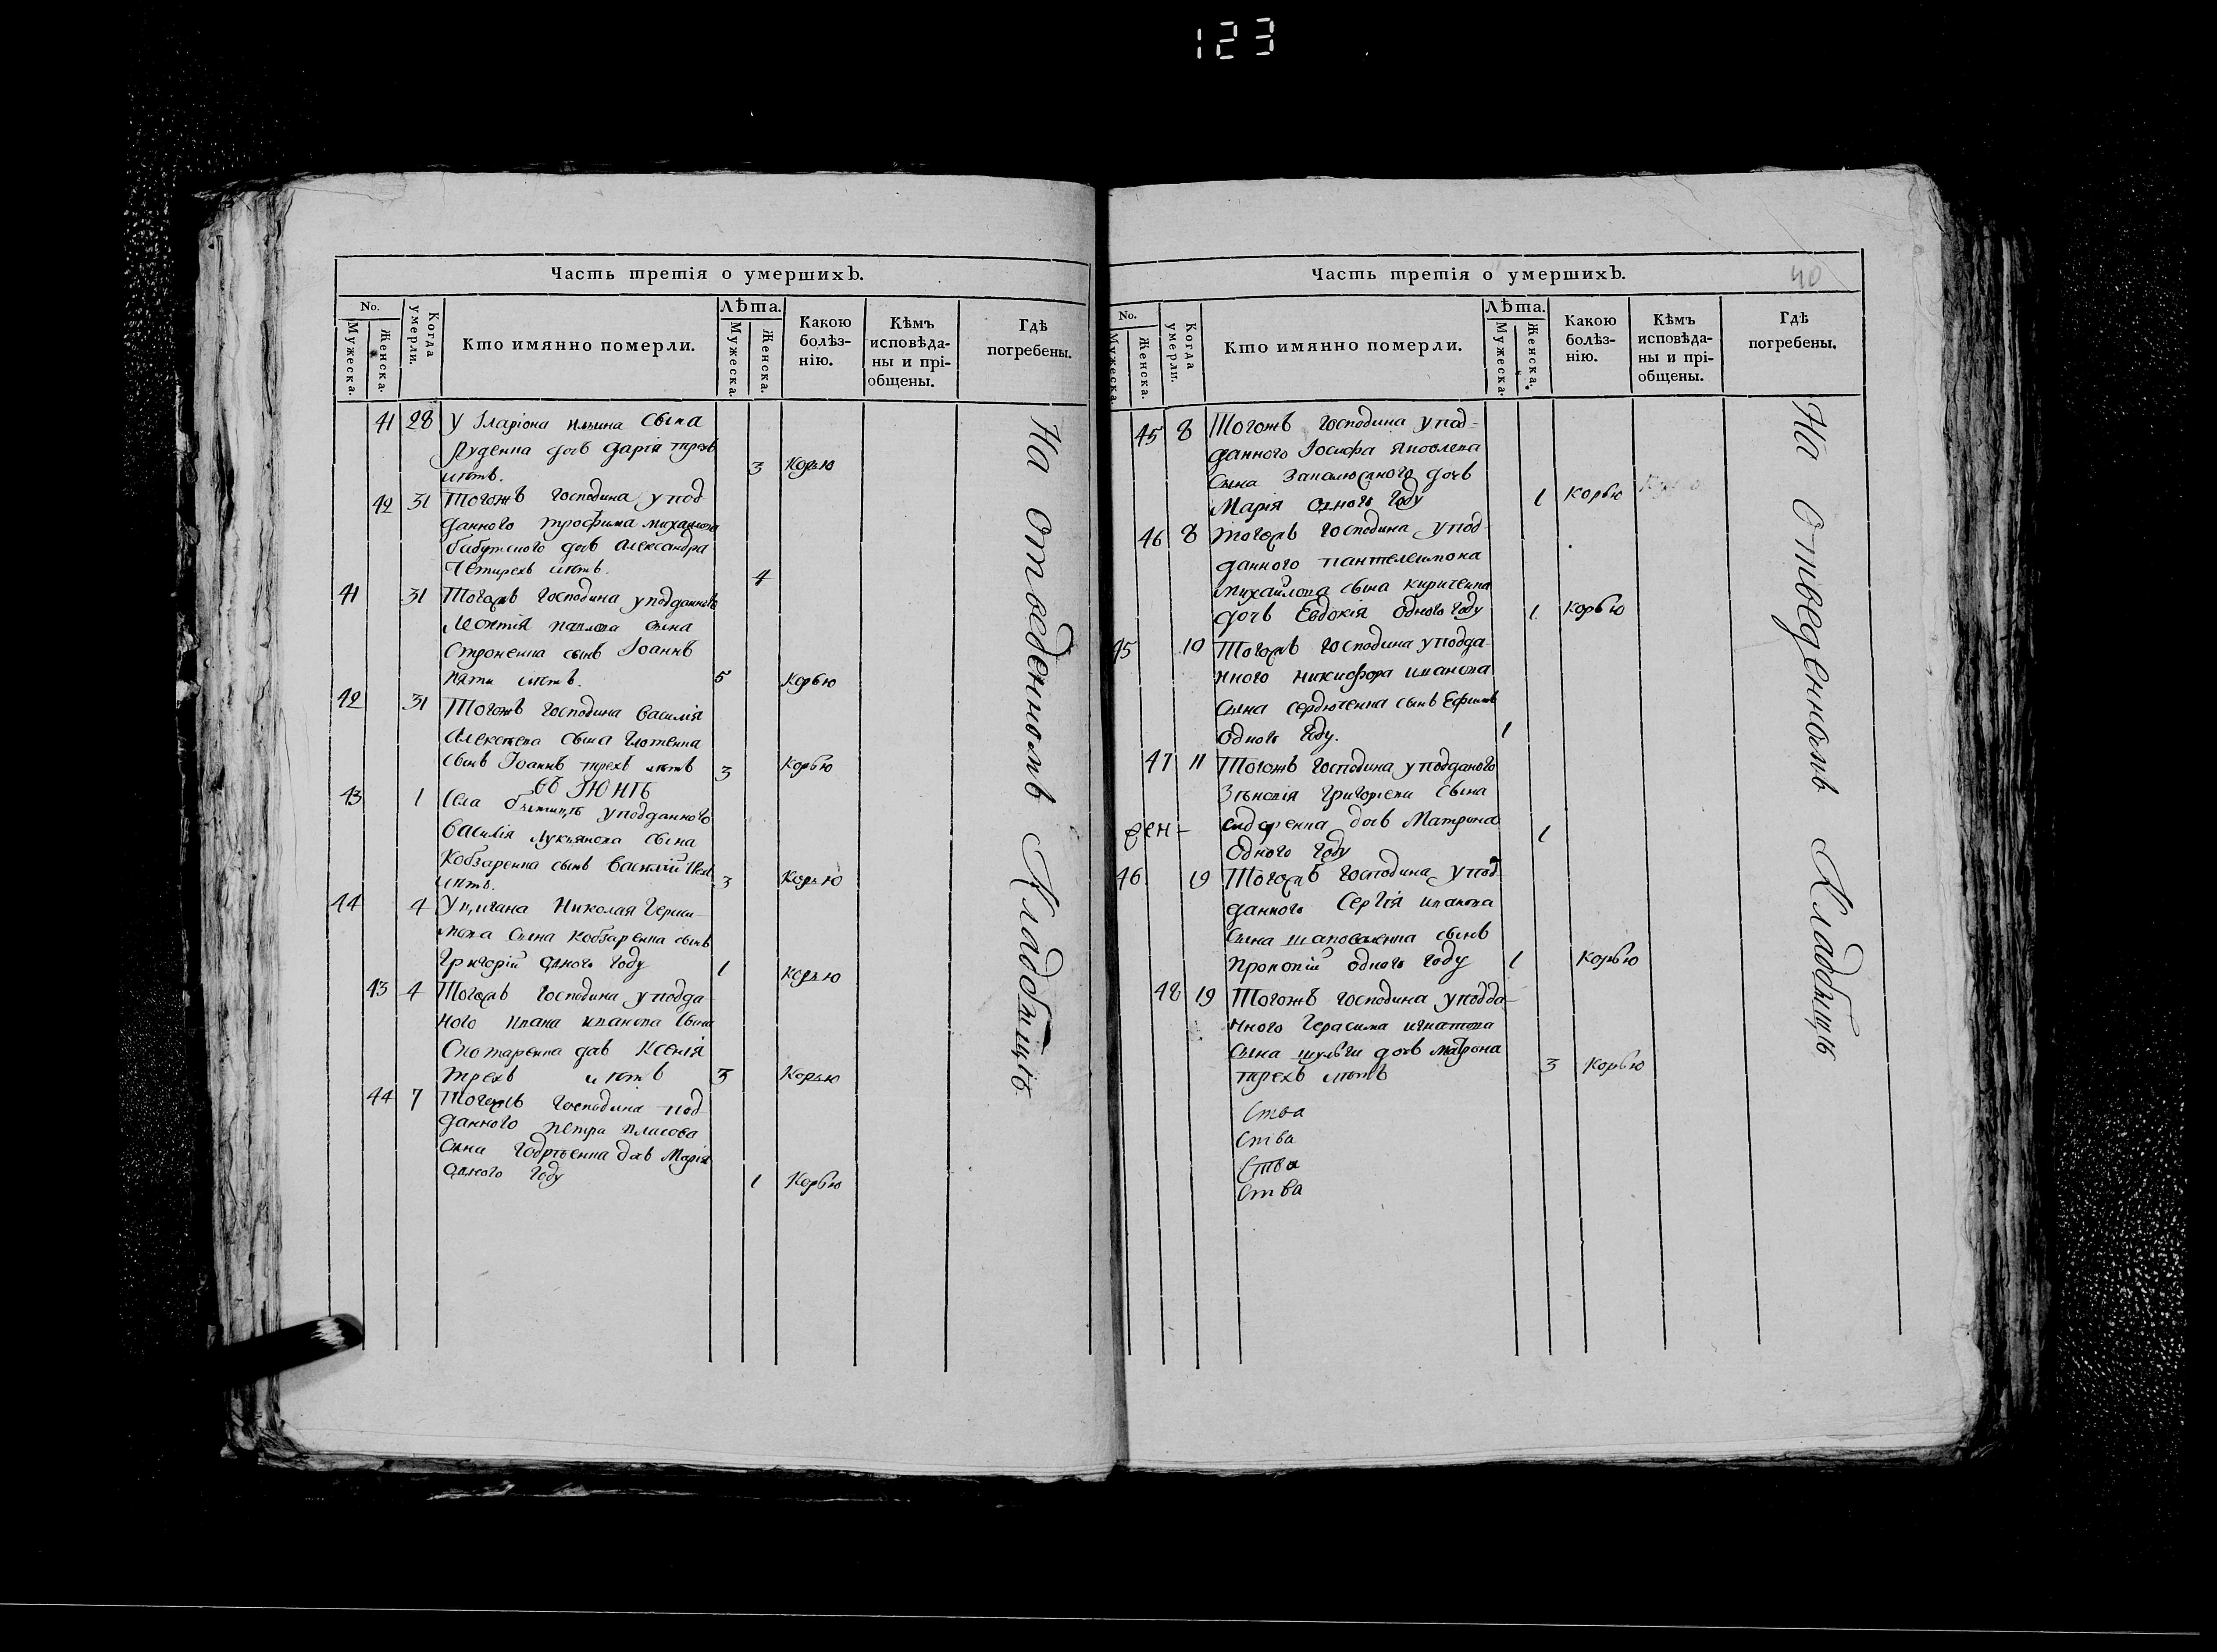 123
Часть третія о умершихъ.
No.
Мужеска.
Женска.
Когда умерли.
Кто имянно померли.
Лѣта.
Мужеска.
Женска.
Какою болѣз-
нію.
Кѣмъ
исповѣда-
ны и прі-
общены.
Гдѣ
погребены.
41 28 У Іларіона сына
дочь Дарія трехъ
лѣтъ. 3 Корью
42 31 Тогожъ Господина у под-
данного Трофима Михаилова
дочь Александра
Четирехъ лѣтъ. 4
41 31 Тогожъ Господина у подданного
Леонтія Павлова сина
сынъ Іоаннъ
Пяти лѣтъ. 5 Корью
42 31 Тогожъ Господина Василія
Алексѣева сына
сынъ Іоаннъ трехъ лѣтъ 3 Корью
въ Іюнѣ
43 1 Села у подданного
Василія Лукьянова сына
Кобзаренка сынъ Василій
лѣтъ. 3 Корью
44 4 Николая
сына Кобзаренка сынъ
Григорій одного году 1 Корью
43 4 Тогожъ Господина у подда-
ного Ивана Иванова сына
дочь Ксенія
трехъ лѣтъ 3 Корью
44 7 Тогожъ Господина под-
данного Петра
сина дочь Марія
одного году 1 Корью
На отведенномъ Кладбищѣ
Часть третія о умершихъ.
40
No.
Мужеска.
Женска.
Когда умерли.
Кто имянно померли.
Лѣта.
Мужеска.
Женска.
Какою
болѣз-
нію.
Кѣмъ
исповѣда-
ны и прі-
общены.
Гдѣ
погребены.
45 8 Тогожъ Господина у под-
данного Іосифа Яковлева
сына дочь
Марія одного году 1 Корью
46 8 Тогожъ Господина у под-
данного Пантелеимона
Михайлова сына Кириченка
дочь Евдокія одного году 1 Корью
45 10 Тогожъ Господина у подда-
нного Никифора Иванова
сына Сердюченка сынъ Ефимъ
одного году. 1
47 11 Тогожъ Господина у подданого
Зѣновія Григориева сына
Сидоренка дочь Матрона
одного году 1
46 19 Тогожъ Господина у под-
данного Сергія Иванова
сына Шаповаленка сынъ
Прокопій одного году 1 Корью
48 19 Тогожъ Господина у подда-
нного Герасима Игнатова
сына Шульги дочь Матрона
трехъ лѣтъ 3 Корью
Ства
Ства
Ства
Ства
На отведенномъ Кладбищѣ